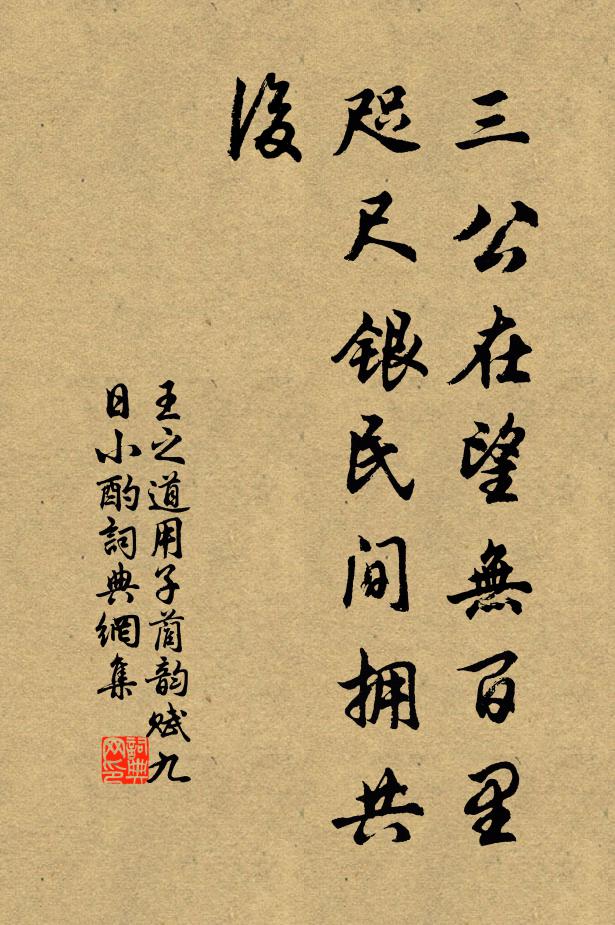 三公在望無百里
咫尺銀民間拥共
後
王之道用子茼韵赋九
日小酌詞典網集
詞典
网印